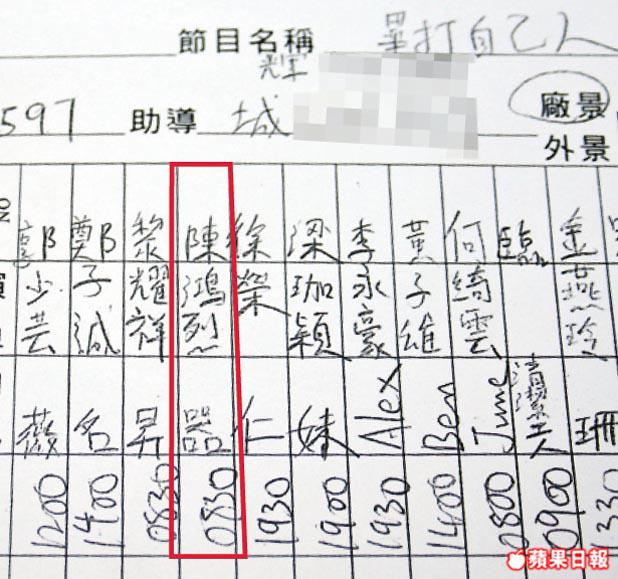 節目名稱 畢打自己人
597 助導 城
廠景
外景
郭少芸 薇 1200
鄭子誠 名 1400
黎耀祥 昇 0830
陳鴻烈 器 0830
徐榮 仁 1930
梁珈穎 妹 1900
李永豪 Alex 1930
黃子雄 Ben 1400
何綺雲 June 0800
臨 清潔工 0900
金燕玲 珊 1330
蘋果日報